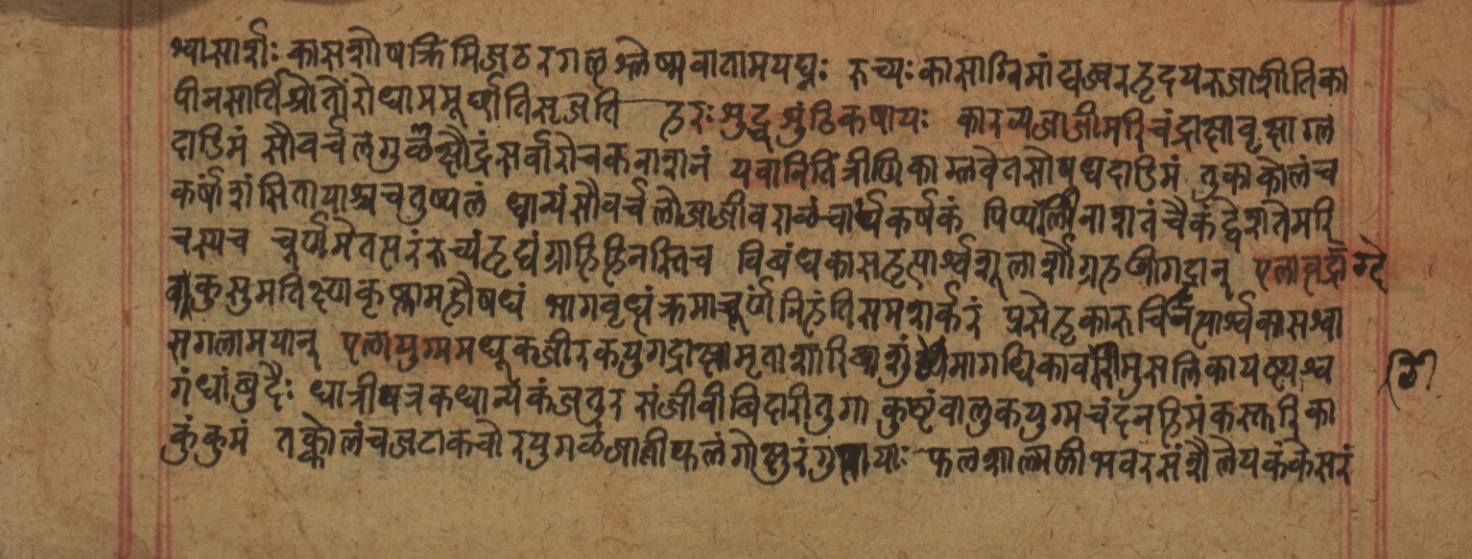 श्वासार्शः कासशोषक्रिमिजठरगलश्लेष्मवातामयघ्नः रुच्यः कासाग्निमांद्यज्वरहृदयरुजाशीतिका
पीनसार्ति श्रोतोरोधाममूर्ध्नातिसृजति हरः शुद्धशुंठिकषायः कारव्यजाजीमरिचंद्राक्षावृक्षाम्ल
दाडिमं सौवर्चलगुळक्षौद्रंसर्वारोचकनाशनं यवानितिंत्रीणिकाम्लवेतसोषधदाडिमं तुकाकोलंच
कर्षांशंसितायाश्चचतुष्पलं धान्यंसौवर्चलोजाजीवराळंचार्धकर्षकं पिप्पलीनाशतंचैकंद्वेशतेमरि
चस्यच चूर्णमेतत्परंरुच्यंहृद्यंग्राहिहिनस्तिच विबंधकासहृत्पार्श्वशूलार्शोग्रहणीगदान् एलात्वङ्ना
कुसुमतिक्ष्णकृष्णामहौषधं भागवृध्यंक्रमाच्चूर्णंनिहंतिसमशर्करं प्रसेहृकारुचिहृत्पार्श्वकासश्वा
सगलामयान् एलायुग्ममधूकजीरकयुगद्राक्षामृता मागधिका मुसलिका
गंधांबुदैः धात्रीपत्रकधान्यकंजतुर संजीवीबिदारीतुगा कुष्टंवालुकयुग्मचंदनहिमंकस्तूरिका
कुंकुमं तक्कोलंचजटाकचोरयुगळंजातीफलंगोक्षुरं फलशाल्मळीभवरसंशैलेयकंकेसरं